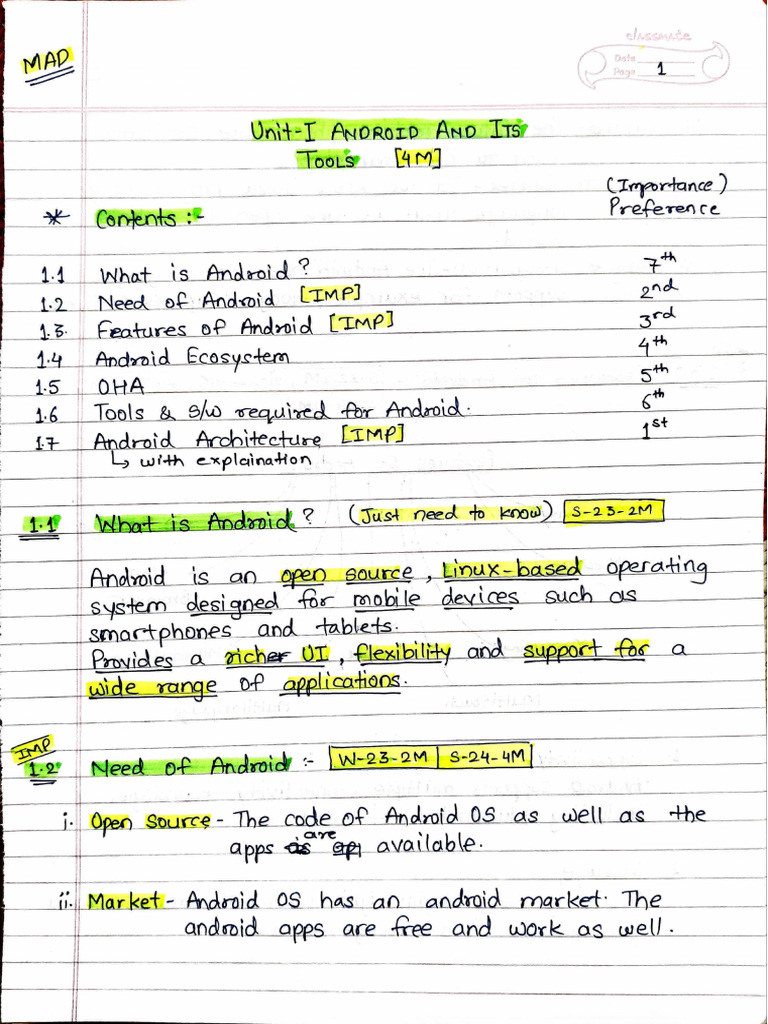 MAD
classmate
Date
Page 1
Unit-I ANDROID AND ITS
TOOLS [4M]
(Importance)
* Contents :- Preference
1.1 What is Android? 7th
1.2 Need of Android [IMP] 2nd
1.3. Features of Android [IMP] 3rd
1.4 Android Ecosystem 4th
1.5 OHA 5th
1.6 Tools & S/W required for Android. 6th
1.7 Android Architecture [IMP] 1st
↳ with explaination
1.1 What is Android? (Just need to know) S-23-2M
Android is an open source, Linux-based operating
system designed for mobile devices such as
smartphones and tablets.
Provides a richer UI, flexibility and support for a
wide range of applications.
IMP
1.2 Need of Android :- W-23-2M S-24-4M
i. Open source - The code of Android OS as well as the
apps are available.
ii. Market - Android OS has an android market. The
android apps are free and work as well.